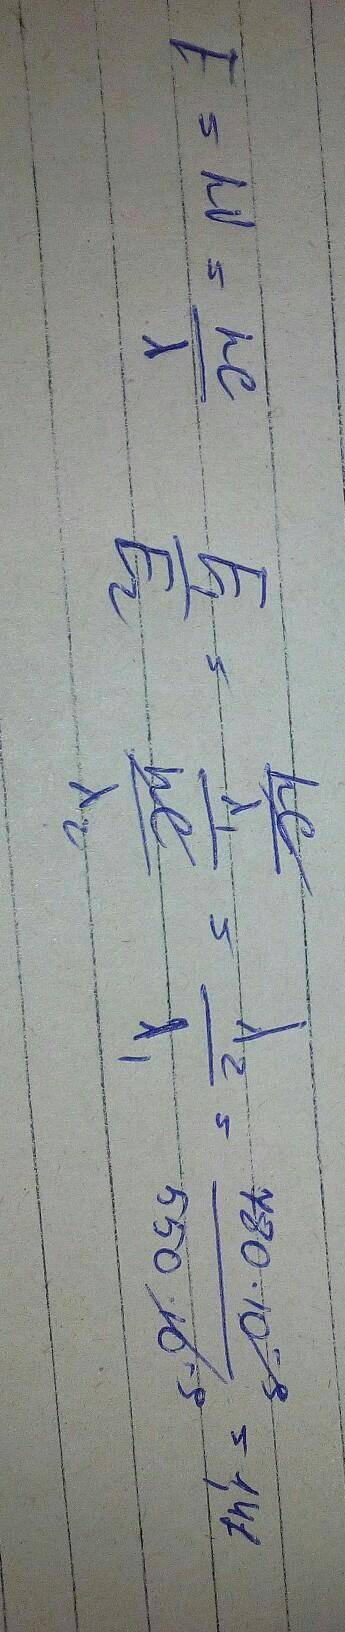 E = hν = hc/λ   E₁/E₂ = (hc/λ₁)/(hc/λ₂) = λ₂/λ₁ = 780·10⁻⁹/550·10⁻⁹ =